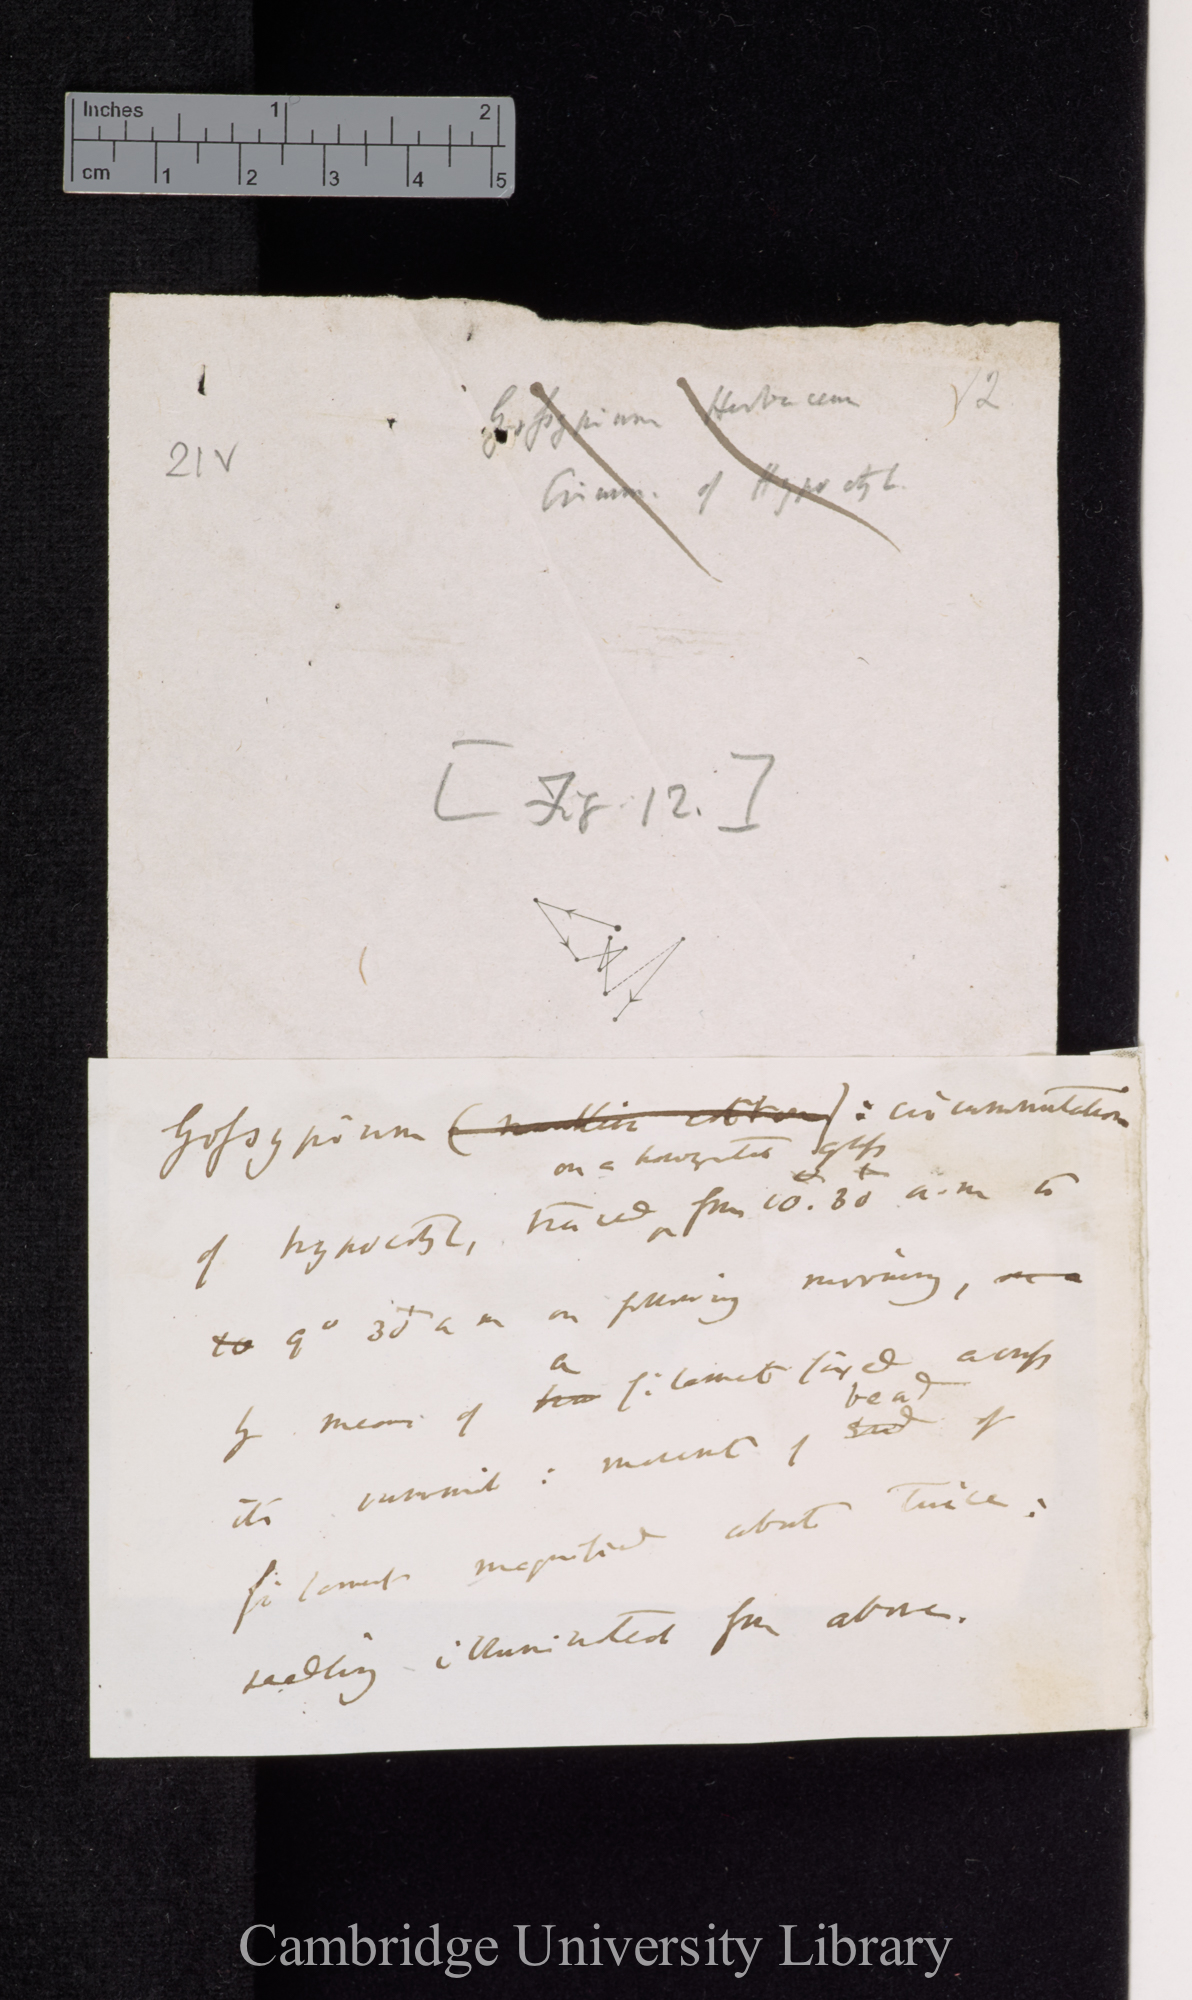 Inches 1 2
cm 1 2 3 4 5
Gossypium Herbaceum
√2
21V
Circum. of Hypocotyl.
[Fig. 12.]
Gossypium (nankin cotton) : circumnutation
on a horizontal glass
of hypocotyl, traced from 10°. 30' a.m to
to 9° 30' a m on following morning, on a
a
by means of two filament fixed across
bead
its summit : movement of end of
filament magnified about twice;
seedling illuminated from above.
Cambridge University Library